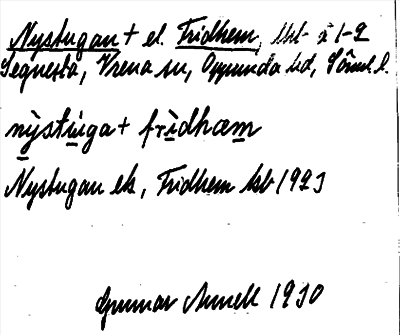 Nystugan + el. Fridhem, lht- å 1-2
Segnesta, Vrena sn, Oppunda hd, Söml. l.
nỳstu̱ga + frìdhæm
Nystugan ek, Fridhem hsb 1923
Gunnar 1930